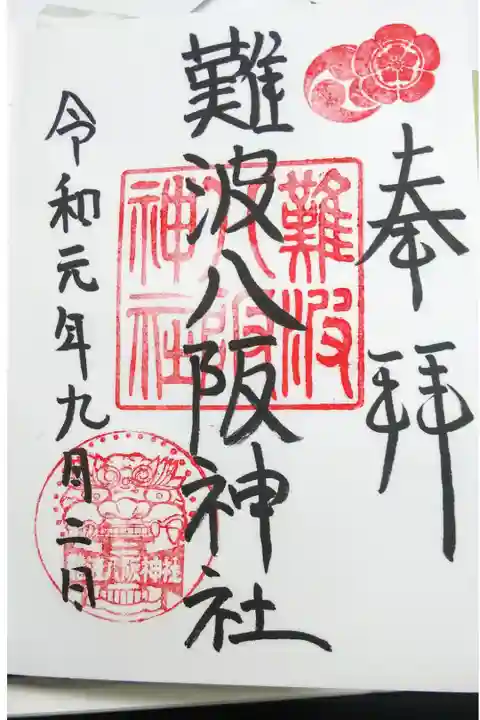 奉拝
難波八阪神社
難波
八阪
神社
令和元年九月二日
難波八阪神社